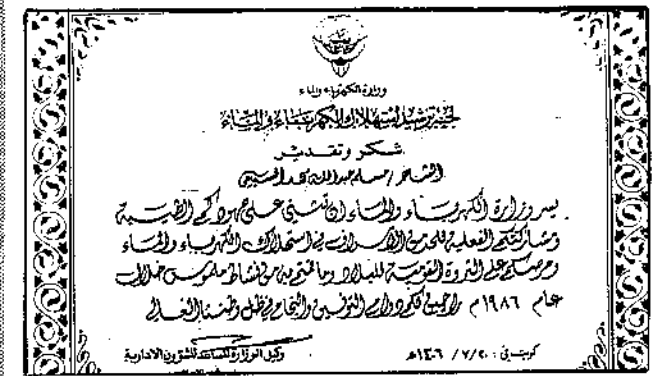 وزارة الكهرباء والماء
لجنة ترشيد استهلاك الكهرباء والماء
شكر وتقدير
الشاعر / مسلم عبدالله
يسر وزارة الكهرباء والماء ان تثني على جهودكم الطيبة
ومشاركتكم الفعلية للحد من الأسراف في استهلاك الكهرباء والماء
وحرصكم على الثروة القومية للبلاد وما قمتم به من نشاط ملموس خلال
عام ١٩٨٦م راجين لكم دوام التوفيق والنجاح في ظل وطننا الغالي
كويت في : ٢٠ / ٧ / ١٤٠٦هـ
وكيل الوزارة المساعد للشؤون الادارية